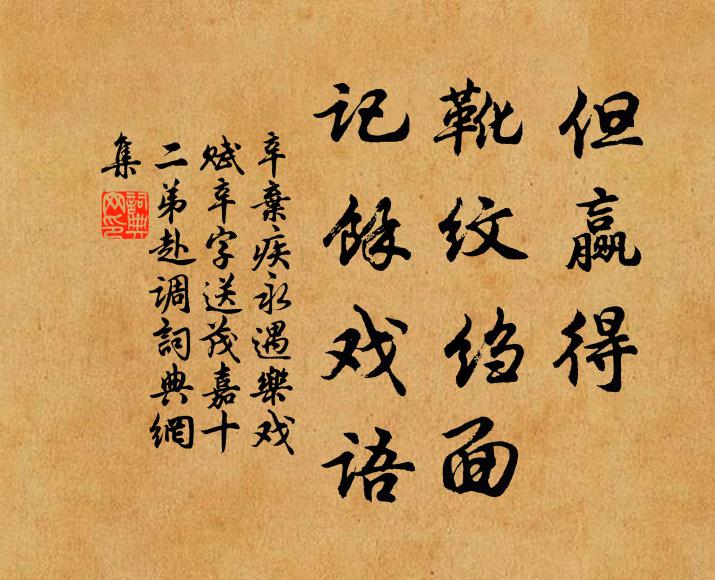 但赢得
靴纹绉面
记餘戏语
辛棄疾永遇樂戏
赋辛字送茂嘉十
二弟赴调詞典網
集
詞典
网印